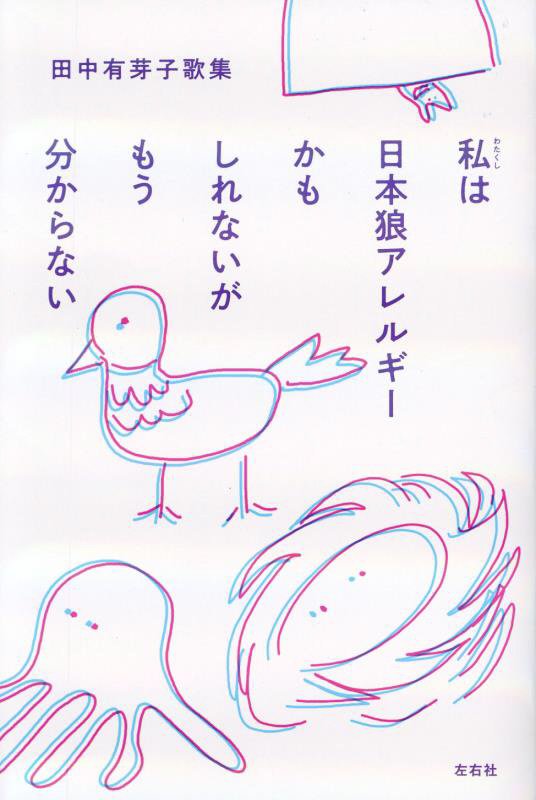 田中有芽子歌集
私は
わたくし
日本狼アレルギー
かも
しれないが
もう
分からない
左右社